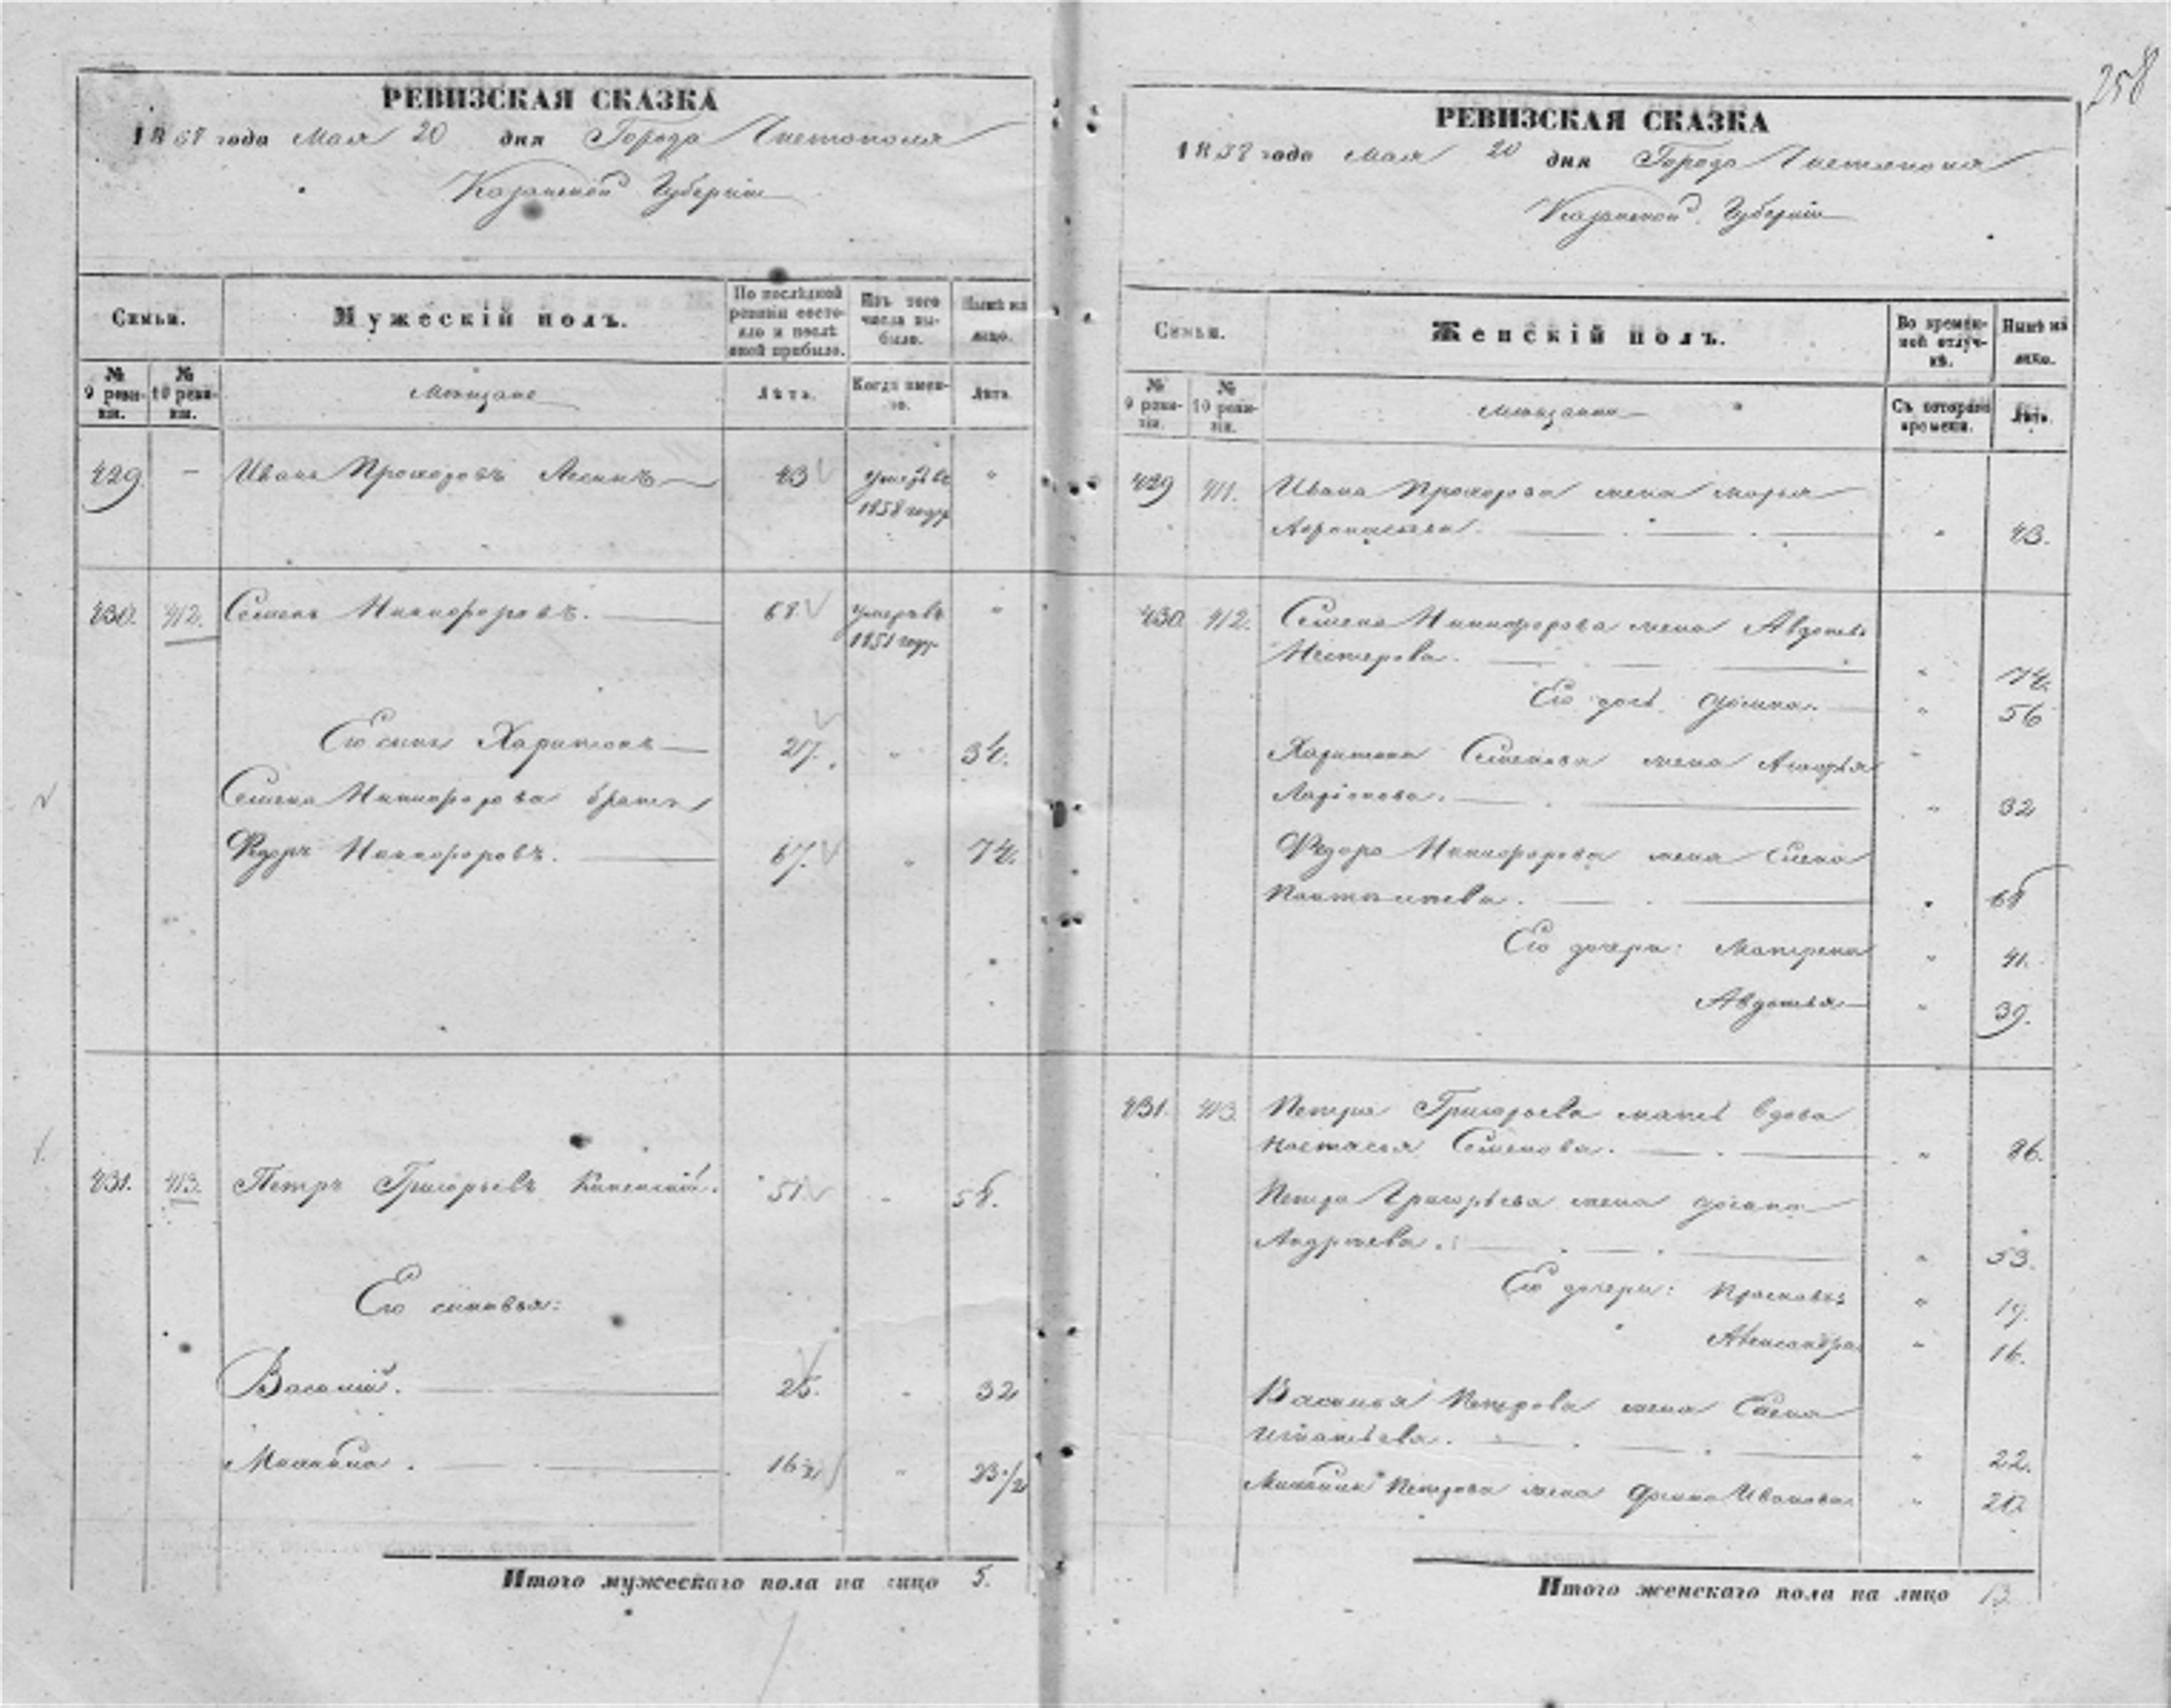 258
РЕВИЗСКАЯ СКАЗКА
1858 года Мая 20 дня Города Чистополя
Казанской Губернии
Семьи.
Мужескій полъ.
По послѣдней ревизіи состояло и послѣ оной прибыло.
Изъ того числа выбыло.
Нынѣ на лицо.
№ 9 ревизіи.
№ 10 ревизіи.
Мещане
Лѣта.
Когда именно.
Лѣта.
429. — Иванъ Прохоровъ 43 умеръ въ "
1858 году
430. 412. Семенъ Никифоровъ. 68. умеръ въ "
1851 году
Его сынъ Харитонъ 27. " 34.
Семена Никифорова братъ
Федоръ Никифоровъ. 67. " 74.
431. 413. Петръ Григорьевъ 51 " 58.
Его сыновья:
Василій. 25. " 32
Михайла. 16 1/2 " 23 1/2
Итого мужескаго пола на лицо 5.
РЕВИЗСКАЯ СКАЗКА
1858 года Мая 20 дня Города Чистополя
Казанской Губернии
Семьи.
Женскій полъ.
Во временной отлучкѣ.
Нынѣ на лицо.
№ 9 ревизіи.
№ 10 ревизіи.
Мещанки
Съ котораго времени.
Лѣта.
429 411. Ивана Прохорова жена Марья
" 43.
430 412. Семена Никифорова жена Авдотья
Нестерова. " 74.
Его дочь " 56
Харитона Семенова жена
Ларіонова. " 32
Федора Никифорова жена Елена
" 68
Его дочери: Матрена " 41.
Авдотья " 39.
431. 413 Петра Григорьева мать вдова
Настасья Семенова. " 86.
Петра Григорьева жена
Андреева. " 53.
Его дочери: Прасковья " 19.
Александра " 16.
Василья Петрова жена Елена
Игнатьева. " 22.
Михайлы Петрова жена Ивановна " 20
Итого женскаго пола на лицо 13